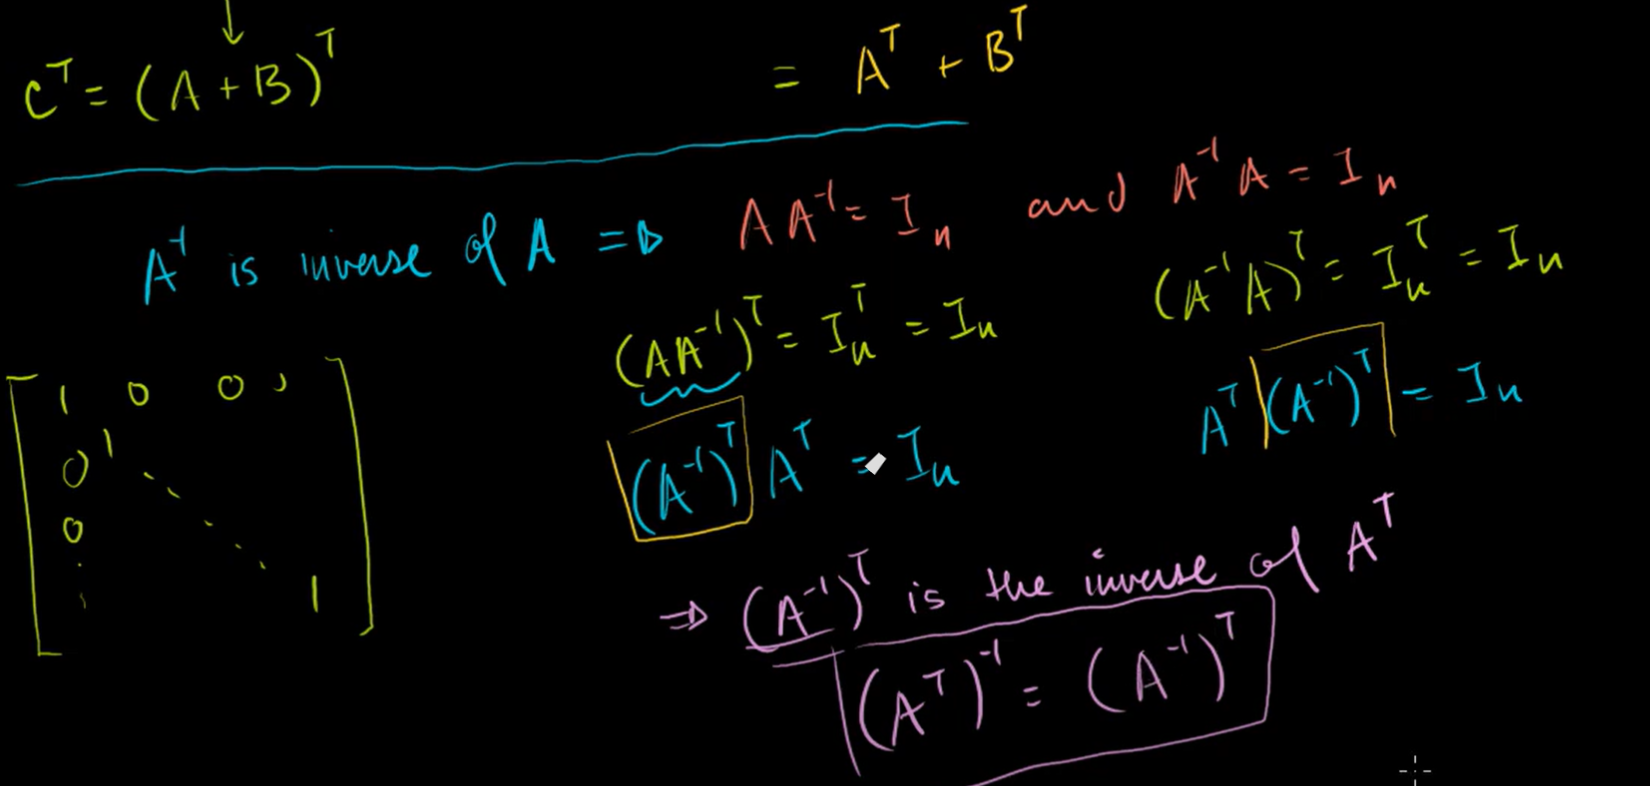 Cᵀ = (A + B)ᵀ = Aᵀ + Bᵀ
A⁻¹ is inverse of A ⇒ A A⁻¹ = Iₙ and A⁻¹ A = Iₙ
(AA⁻¹)ᵀ = Iₙᵀ = Iₙ
(A⁻¹A)ᵀ = Iₙᵀ = Iₙ
(A⁻¹)ᵀ Aᵀ = Iₙ
Aᵀ (A⁻¹)ᵀ = Iₙ
1 0 0
0 1
0
1
⇒ (A⁻¹)ᵀ is the inverse of Aᵀ
(Aᵀ)⁻¹ = (A⁻¹)ᵀ